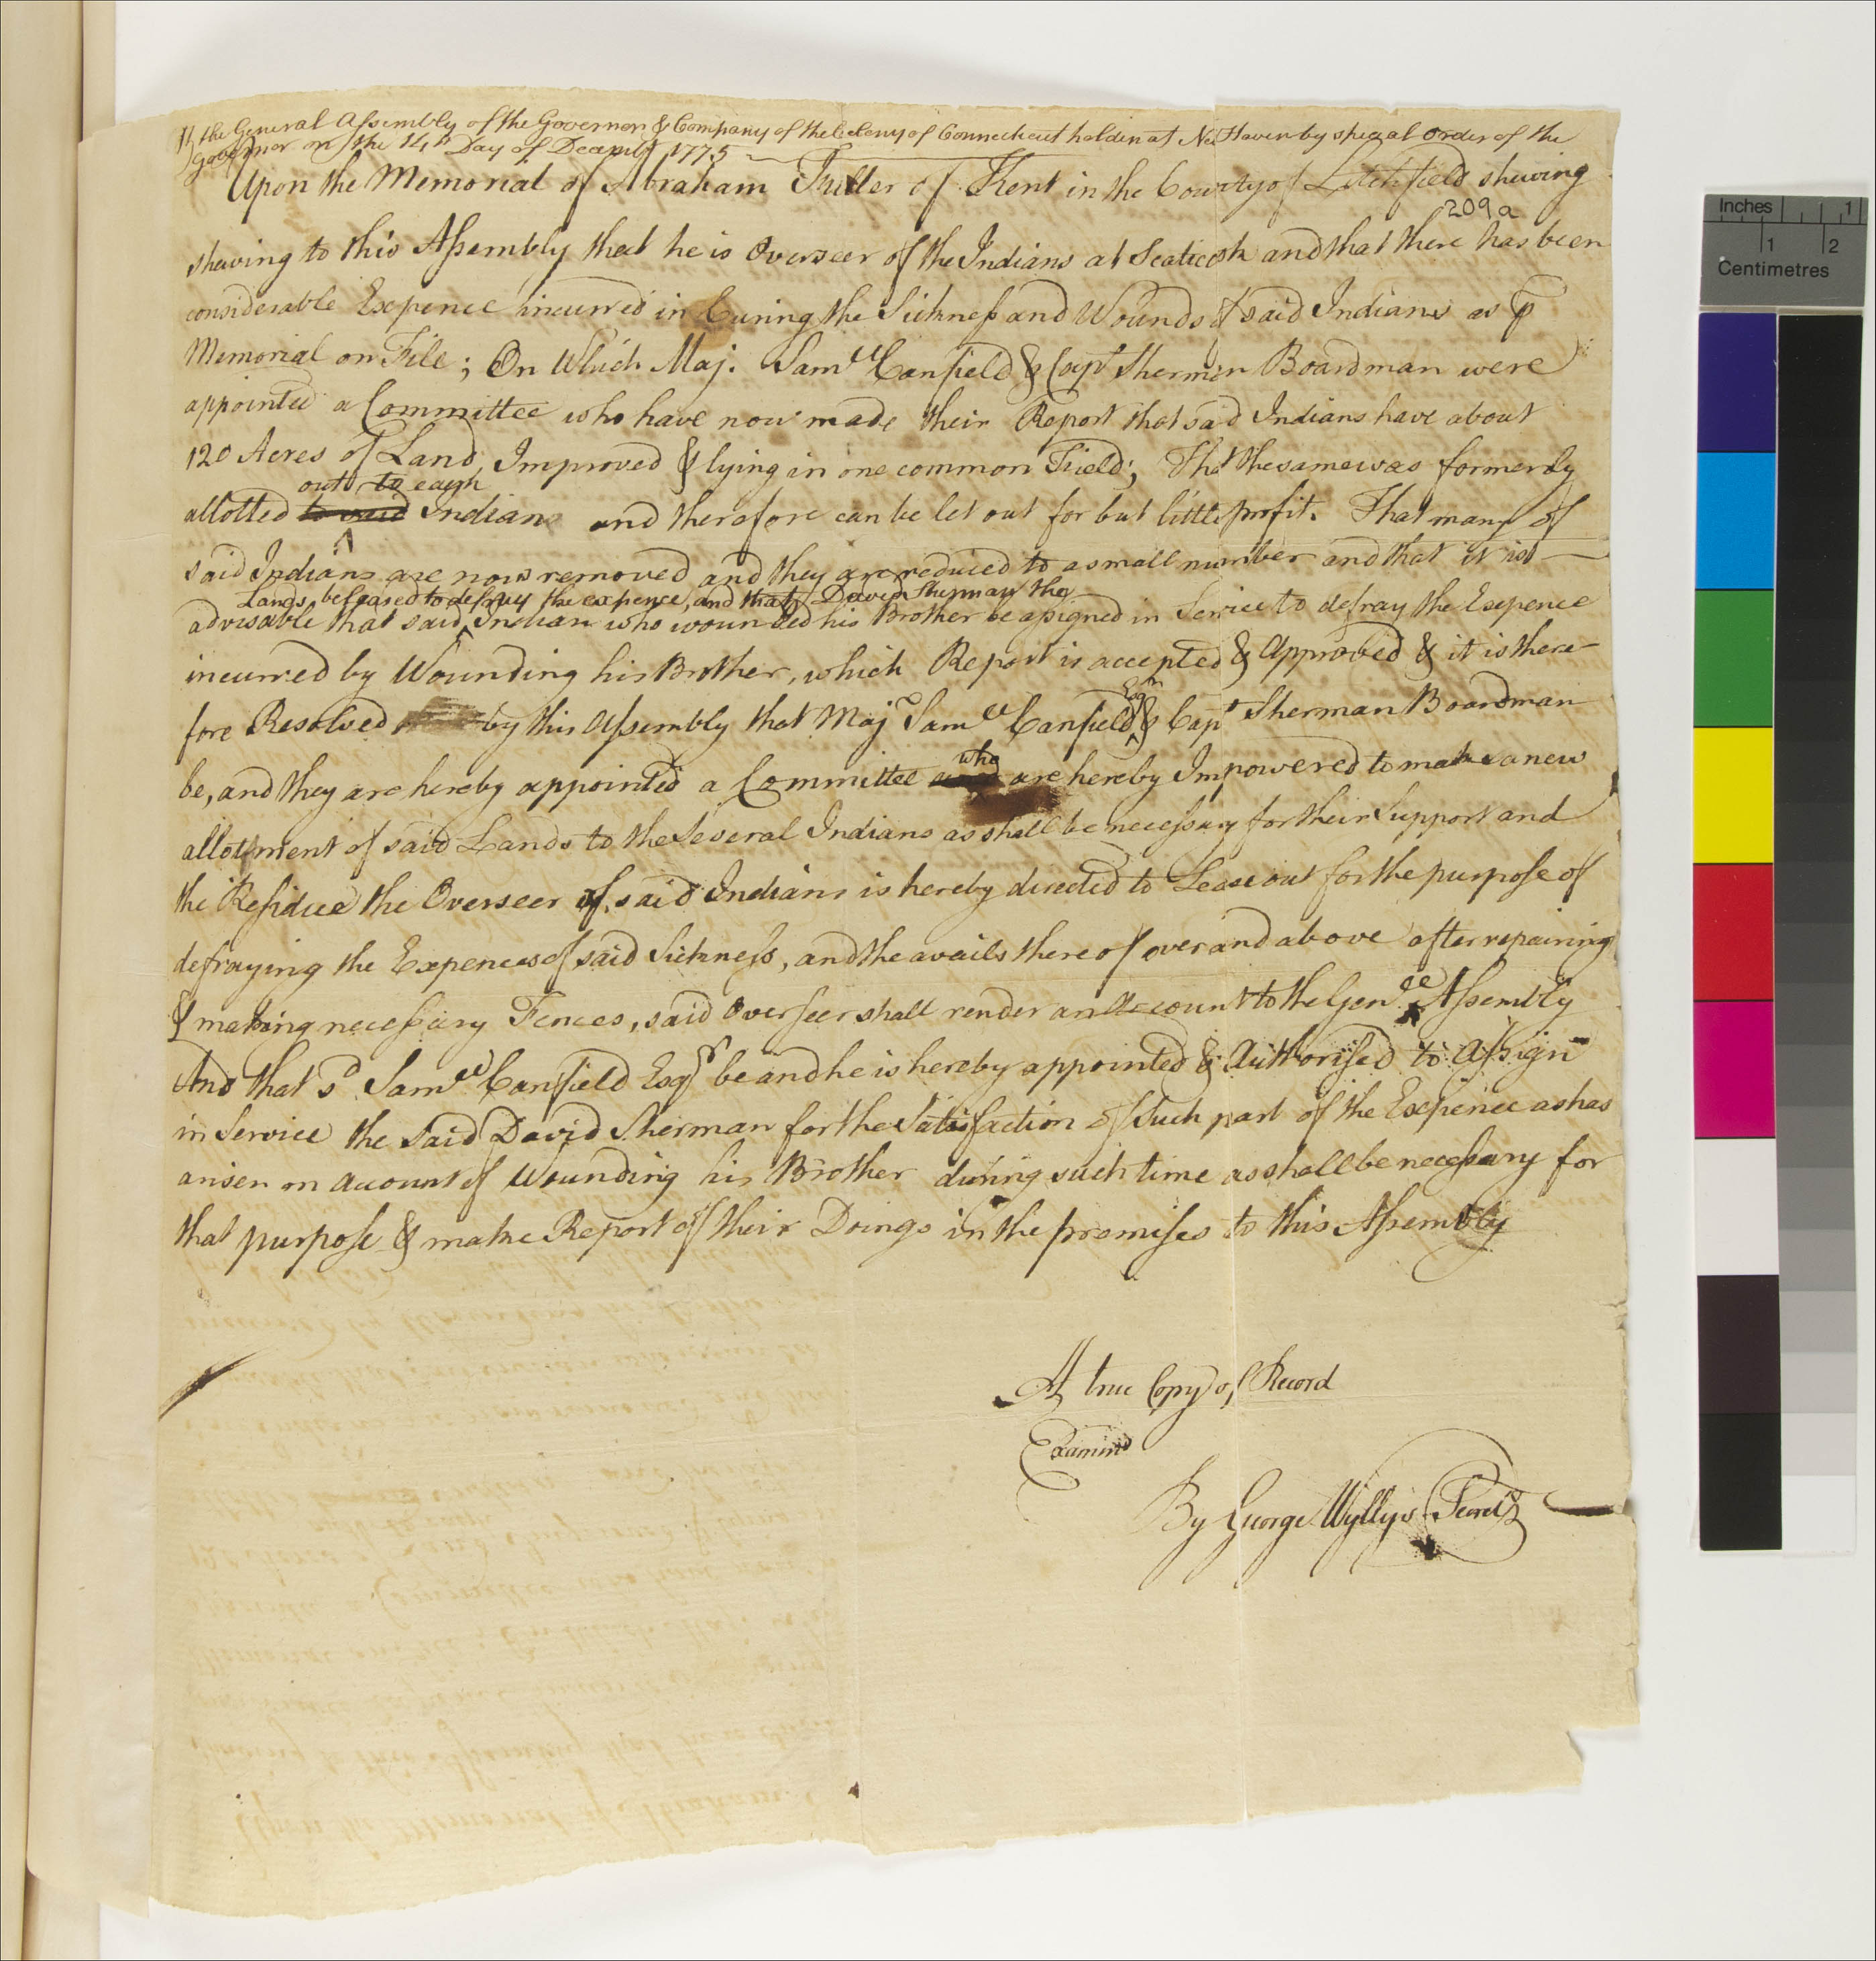 At the General Assembly of the Governor & Company of the Colony of Connecticut holden at New Haven by special order of the
Governor on the 14th Day of Decemb 1775
Upon the Memorial of Abraham Fuller of Kent in the County of Litchfield shewing
209a
shewing to this Assembly that he is Overseer of the Indians at Scaticook and that there has been
considerable Expence incurred in Curing the Sickness and Wounds of said Indians as p
Memorial on File; On Which Maj. Samll Canfield & Capt Sherman Boardman were
appointed a Committee who have now made their Report that said Indians have about
120 Acres of Land, Improved & lying in one common Field; That the same was formerly
out to each
allotted to said Indians and therefore can be let out for but little profit. That many of
said Indians are now removed and they are reduced to a small number and that it is
Lands be leased to defray the expence, and that David Sherman the
advisable that said Indian who wounded his Brother be asigned in Service to defray the Expence
incurred by Wounding his Brother, which Report is accepted & Approved & it is there-
Esqr
fore Resolved by this Assembly that Majr Samll Canfield & Capt Sherman Boardman
who
be, and they are hereby appointed a Committee and are hereby Impowered to make a new
allotment of said Lands to the Several Indians as shall be necessary for their Support and
the Residue the Overseer of said Indians is hereby directed to Lease out for the purpose of
defraying the Expences of said Sickness, and the avails there of over and above after repairing
& making necessary Fences, said Overseer shall render an Account to the Genll Assembly
And that sd Samll Canfield Esqr be and he is hereby appointed & Authorised to Assign
in Service the said David Sherman for the Satisfaction of Such part of the Expence as has
arisen on account of Wounding his Brother during such time as shall be necessary for
that purpose & make Report of their Doings in the premises to this Assembly
A true Copy of Record
Examind
By George Wyllys Secrety
Inches 1
1 2
Centimetres